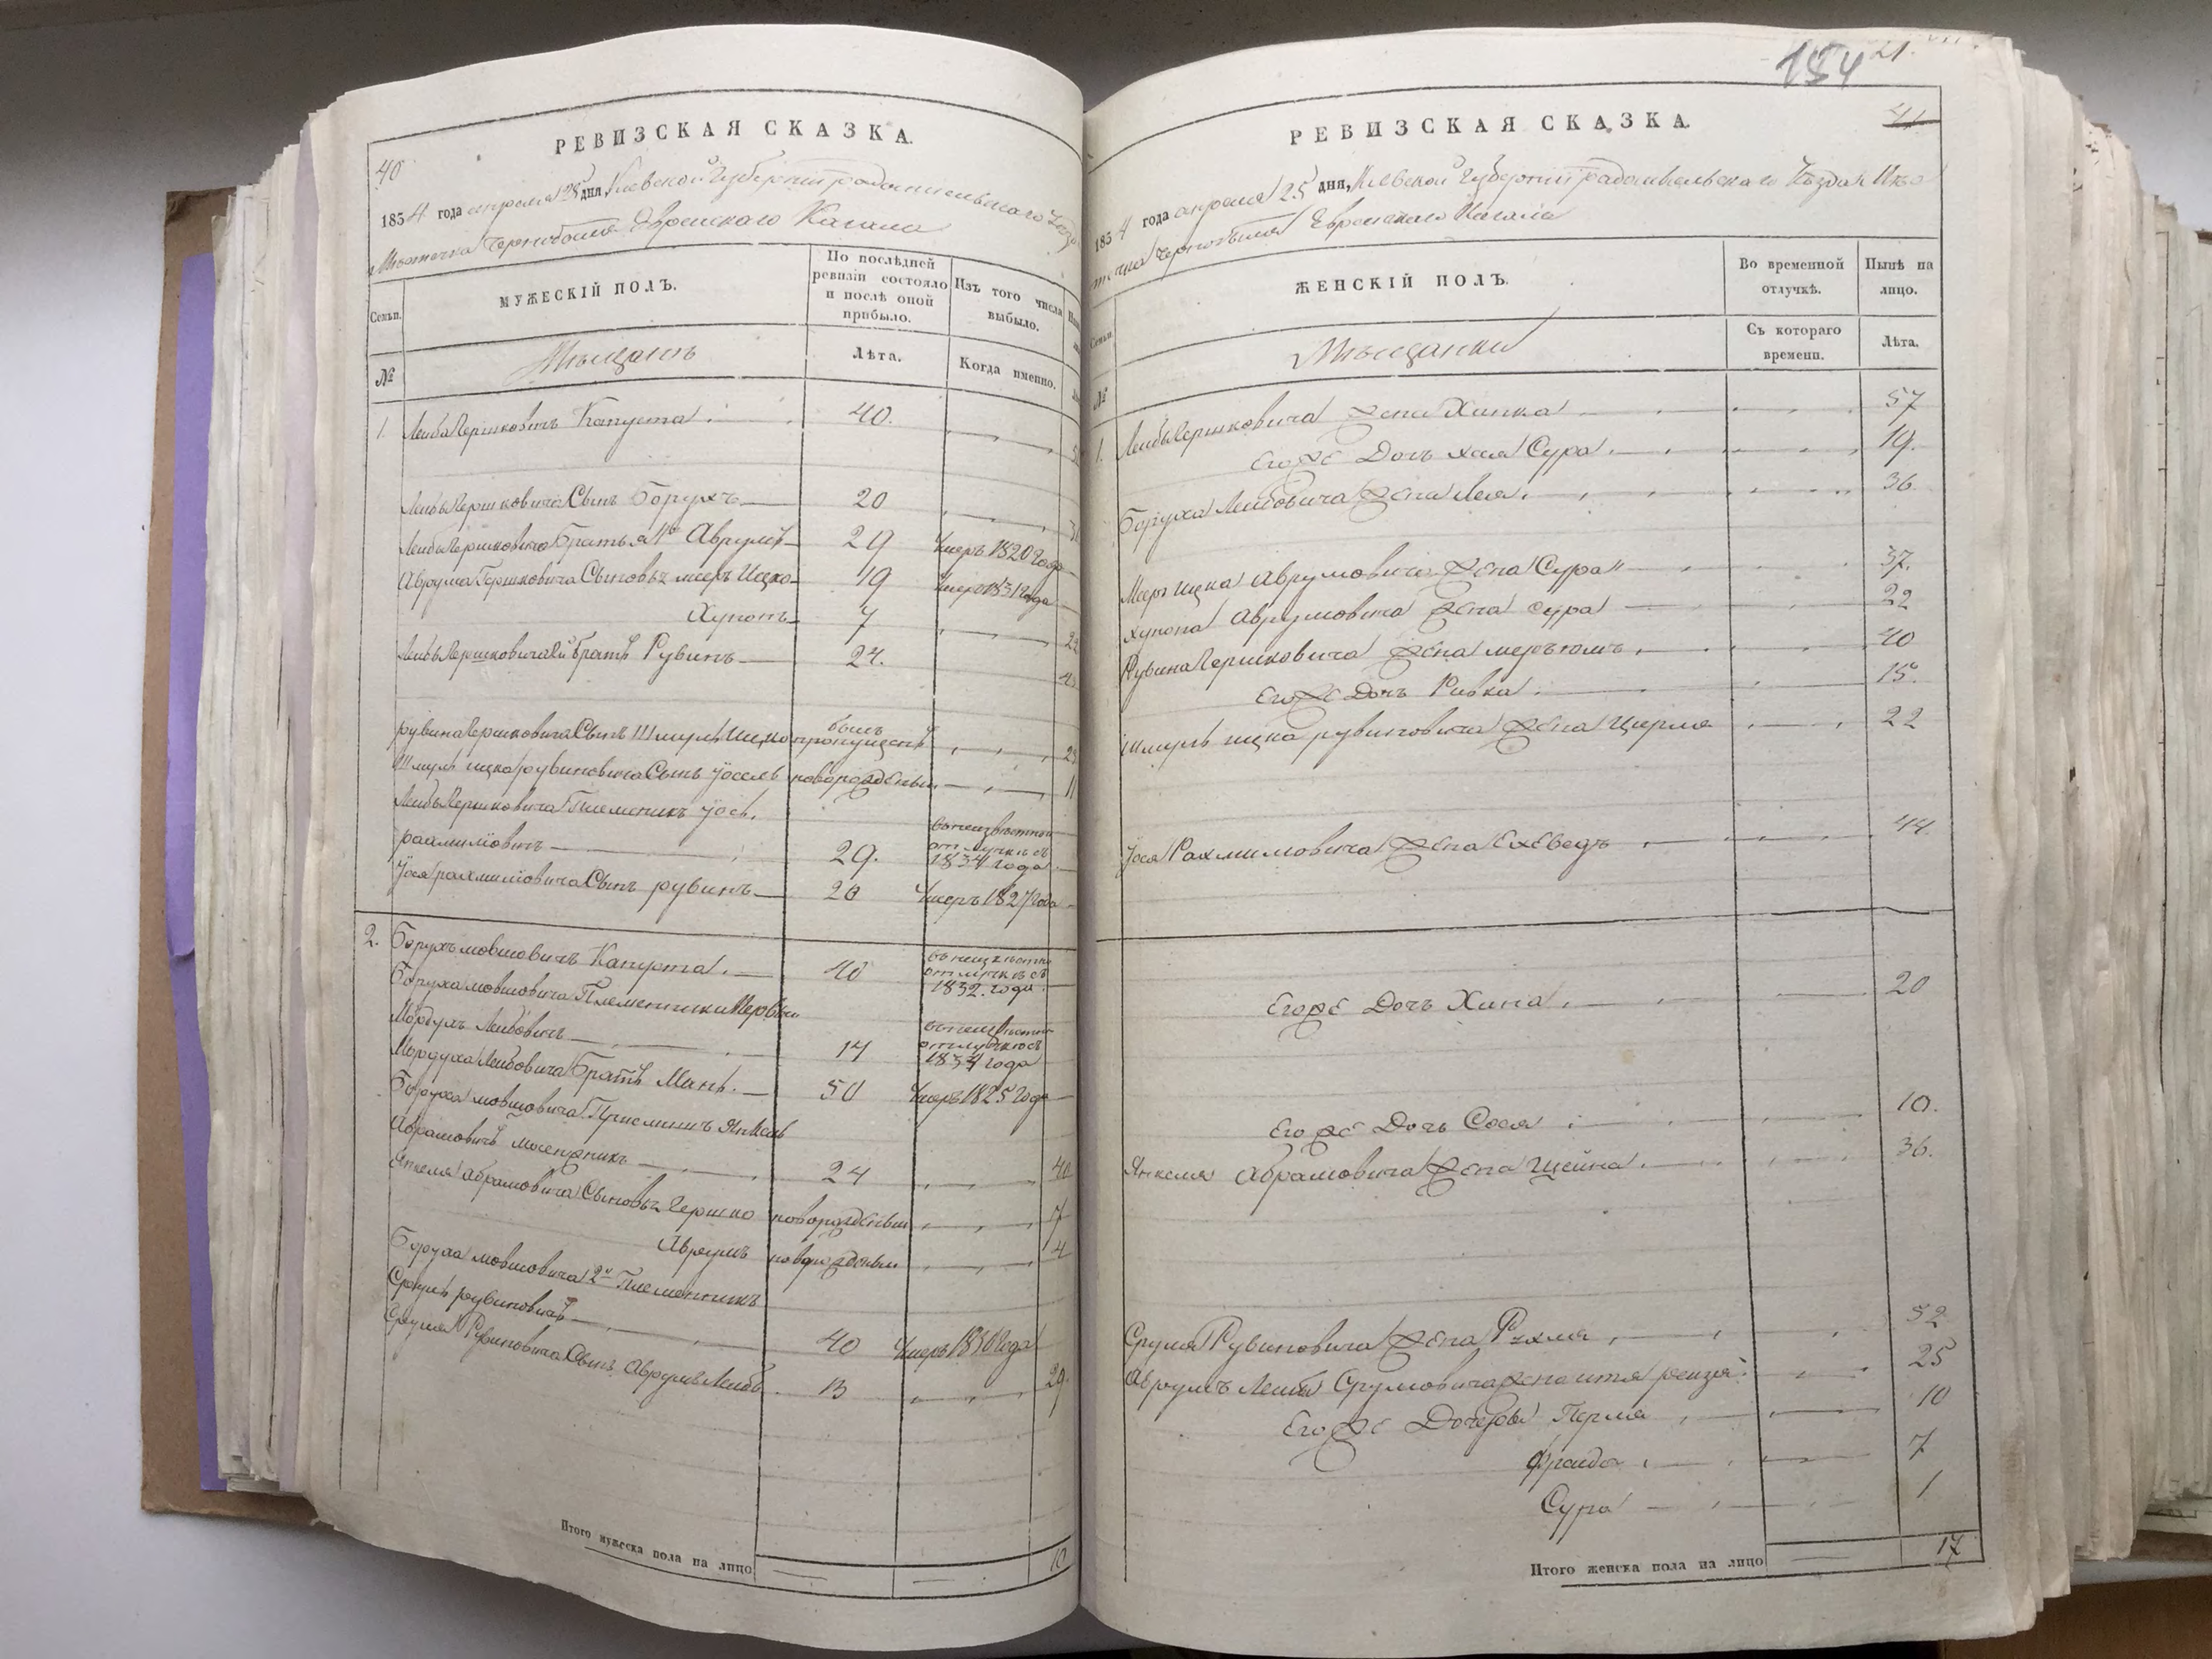 40
РЕВИЗСКАЯ СКАЗКА.
1854 года апреля 25 дня, Киевской Губернiи Радомысльского Уезда
Мѣстечка Чернобыля Еврейскаго Кагала
Семьи.
МУЖЕСКІЙ ПОЛЪ.
По послѣдней ревизіи состояло и послѣ оной прибыло.
Изъ того числа выбыло.
№
Мѣщанъ
Лѣта.
Когда именно.
1. Лейба Гершковичъ Капуста 40.
Лейбы Гершковича Сынъ Борухъ 20
Лейбы Гершковича Братья 1й Аврумъ 29 Умеръ 1820 года
Аврума Гершковича Сыновья мееръ Ицко 19 Умеръ 1831 года
Хунонъ 4 22
Лейбы Гершковича 2й братъ Рувинъ 24.
рувина Гершковича Сынъ Шмуль Ицко былъ пропущенъ
Шмуль ицка рувиновича Сынъ Йосель новорожденый 11
Лейбы Гершковича Племеникъ Йось
рахмиловичъ 29. въ неизвѣстной отлучкѣ съ 1834 года
Йося рахмиловича Сынъ рувинъ 20 Умеръ 1827 года
2. Борухъ мовшовичъ Капуста 40 въ неизвѣстно отлучкѣ съ 1832 года
Боруха мовшовича Племенники Первый
Мордухъ Лейбовичъ 14 въ неизвѣстно отлучкѣ съ 1834 года
Мордуха Лейбовича Братъ Мань 50 Умеръ 1825 года
Боруха мовшовича Приемишъ Янкель
Абрамовичъ 24 40
Янкеля абрамовича Сыновья Гершко новорожденый 7
Аврумъ новорожденый 4
Боруха мовшовича 2й Племенникъ
Срулъ рувиновичъ 40 Умеръ 1836 года
Сруля Рувиновича Сынъ Аврумъ Лейба 13 29.
Итого мужеска пола на лицо 10
184 21.
41
РЕВИЗСКАЯ СКАЗКА.
1854 года апреля 25 дня, Киевской Губернiи Радомысльскаго Уезда Мѣс
течка Чернобыля Еврейскаго Кагала
Семьи.
ЖЕНСКІЙ ПОЛЪ.
Во временной отлучкѣ.
Нынѣ на лицо.
№
Мѣщанки
Съ котораго времени.
Лѣта.
1. Лейбы Гершковича жена Хинка 57
Его же Дочь хая Сура 19.
Боруха Лейбовича жена Лея 36.
Меер Ицка Аврумовича жена Сура 37.
Хунона Аврумовича жена Сура 22
Рувина Гершковича жена меръюмъ 40
Его же Дочь Ривка 15.
Шмуль ицка рувиновича жена Цирля 22
Йося Рахмиловича жена Ехеведъ 44
Его же Дочь Хина 20
Его же Дочь Сося 10.
Янкеля Абрамовича жена Шейна 36.
Сруля Рувиновича жена Рухля 52
Аврумъ Лейбы Срулиовича жена ития рейзя 25
Его же Дочери Перля 10
Фрейда 7
Сура 1
Итого женска пола на лицо 17